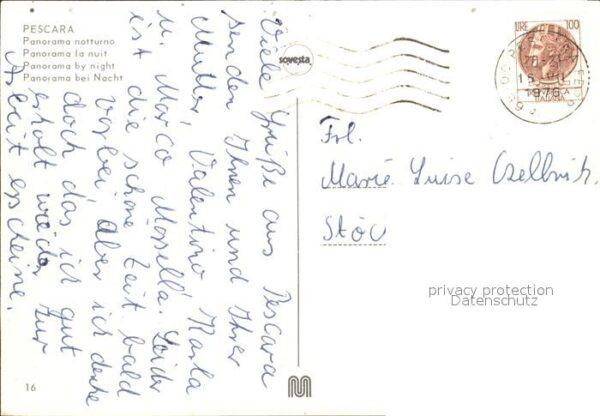 PESCARA
Panorama notturno
Panorama la nuit
Panorama by night
Panorama bei Nacht
sovesta
LIRE 100
ITALIANA
1976
Viele Grüße aus Pescara
senden Ihnen und Ihrer
Mutter, Valentino Karla
u. Marco Leider
ist die schöne Zeit bald
vorbei, aber ich denke
doch das ich gut
erholt wieder zur
Arbeit erscheine.
Frl.
Marie Luise
privacy protection
Datenschutz
16